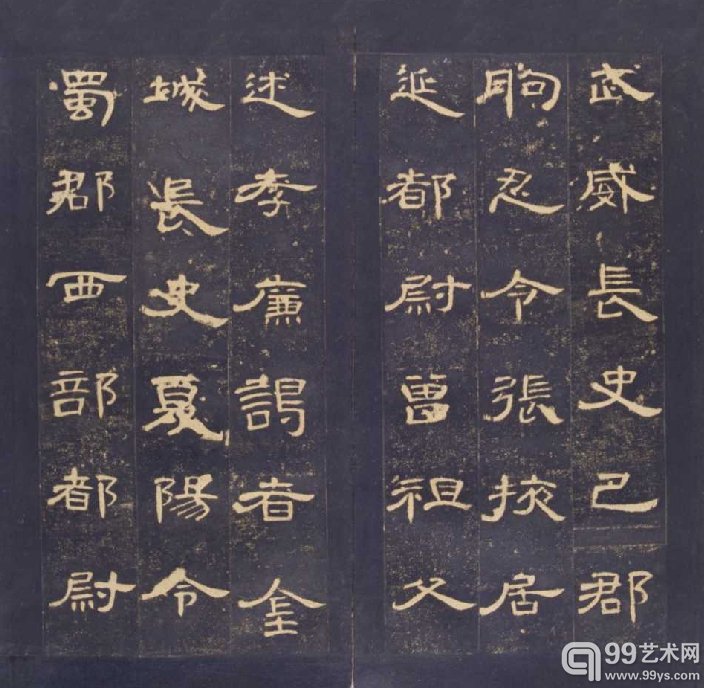 武威長史巴郡
朐忍令張掖居
延都尉曾祖父
述孝廉謁者金
城長史夏陽令
蜀郡西部都尉
99艺术网
www.99ys.com